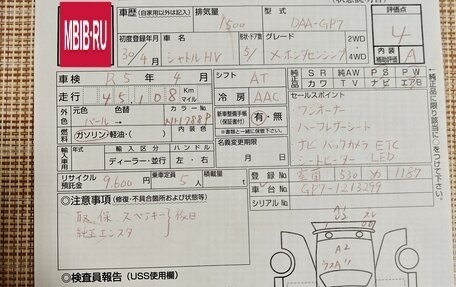 車歴 (自家用以外は記入) 排気量 1500 型式 DAA-GP7
評価点 4
内装 補助評価 A
MBIB·RU
初度登録年月 30/4月 車名 シャトルHV 形状・ドア数 5/ グレード X ホンダセンシング 2WD・4WD
車検 R5年4月 シフト AT
SR 純AW PS PW
カワ TV ナビ エアB
走行 45,108 Km マイル 冷房 AAC
純正品に限り該当に○をつけて下さい。
セールスポイント
元色 パール→ 色替 カラーNo. NH788P
新車整備手帳(保証書付) 有・無
※有無に○を記入して下さい。
ワンオーナー
ハーフレザーシート
ナビ バックカメラ ETC
シートヒーター LED
燃料 ガソリン・軽油・( )
名義変更期限 月 日
輸入車用 年式 輸入区分 ハンドル
ディーラー・並行 左・右
リサイクル預託金 9600円 乗車定員 5人 積載量 t
登録No.
530 1187
車台No. GP7-1213299
シリアルNo.
◎注意事項(修復・不具合箇所および状態等)
取、保、スペアキー 後日
純正エンスタ
A2
◎検査員報告(USS使用欄)